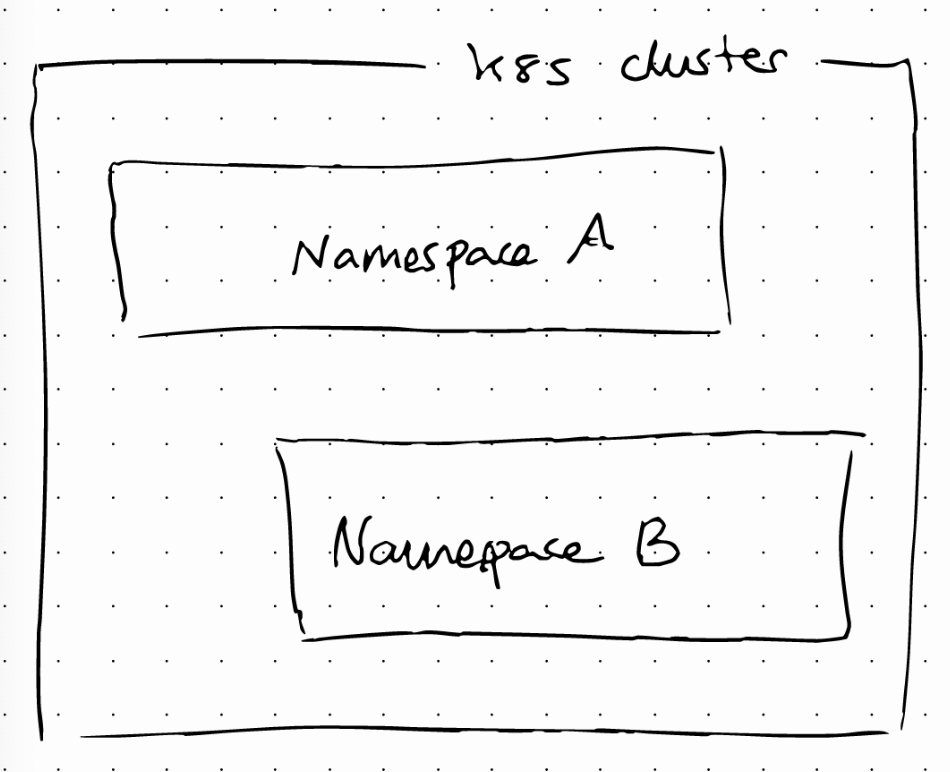 k8s cluster
Namespace A
Namespace B